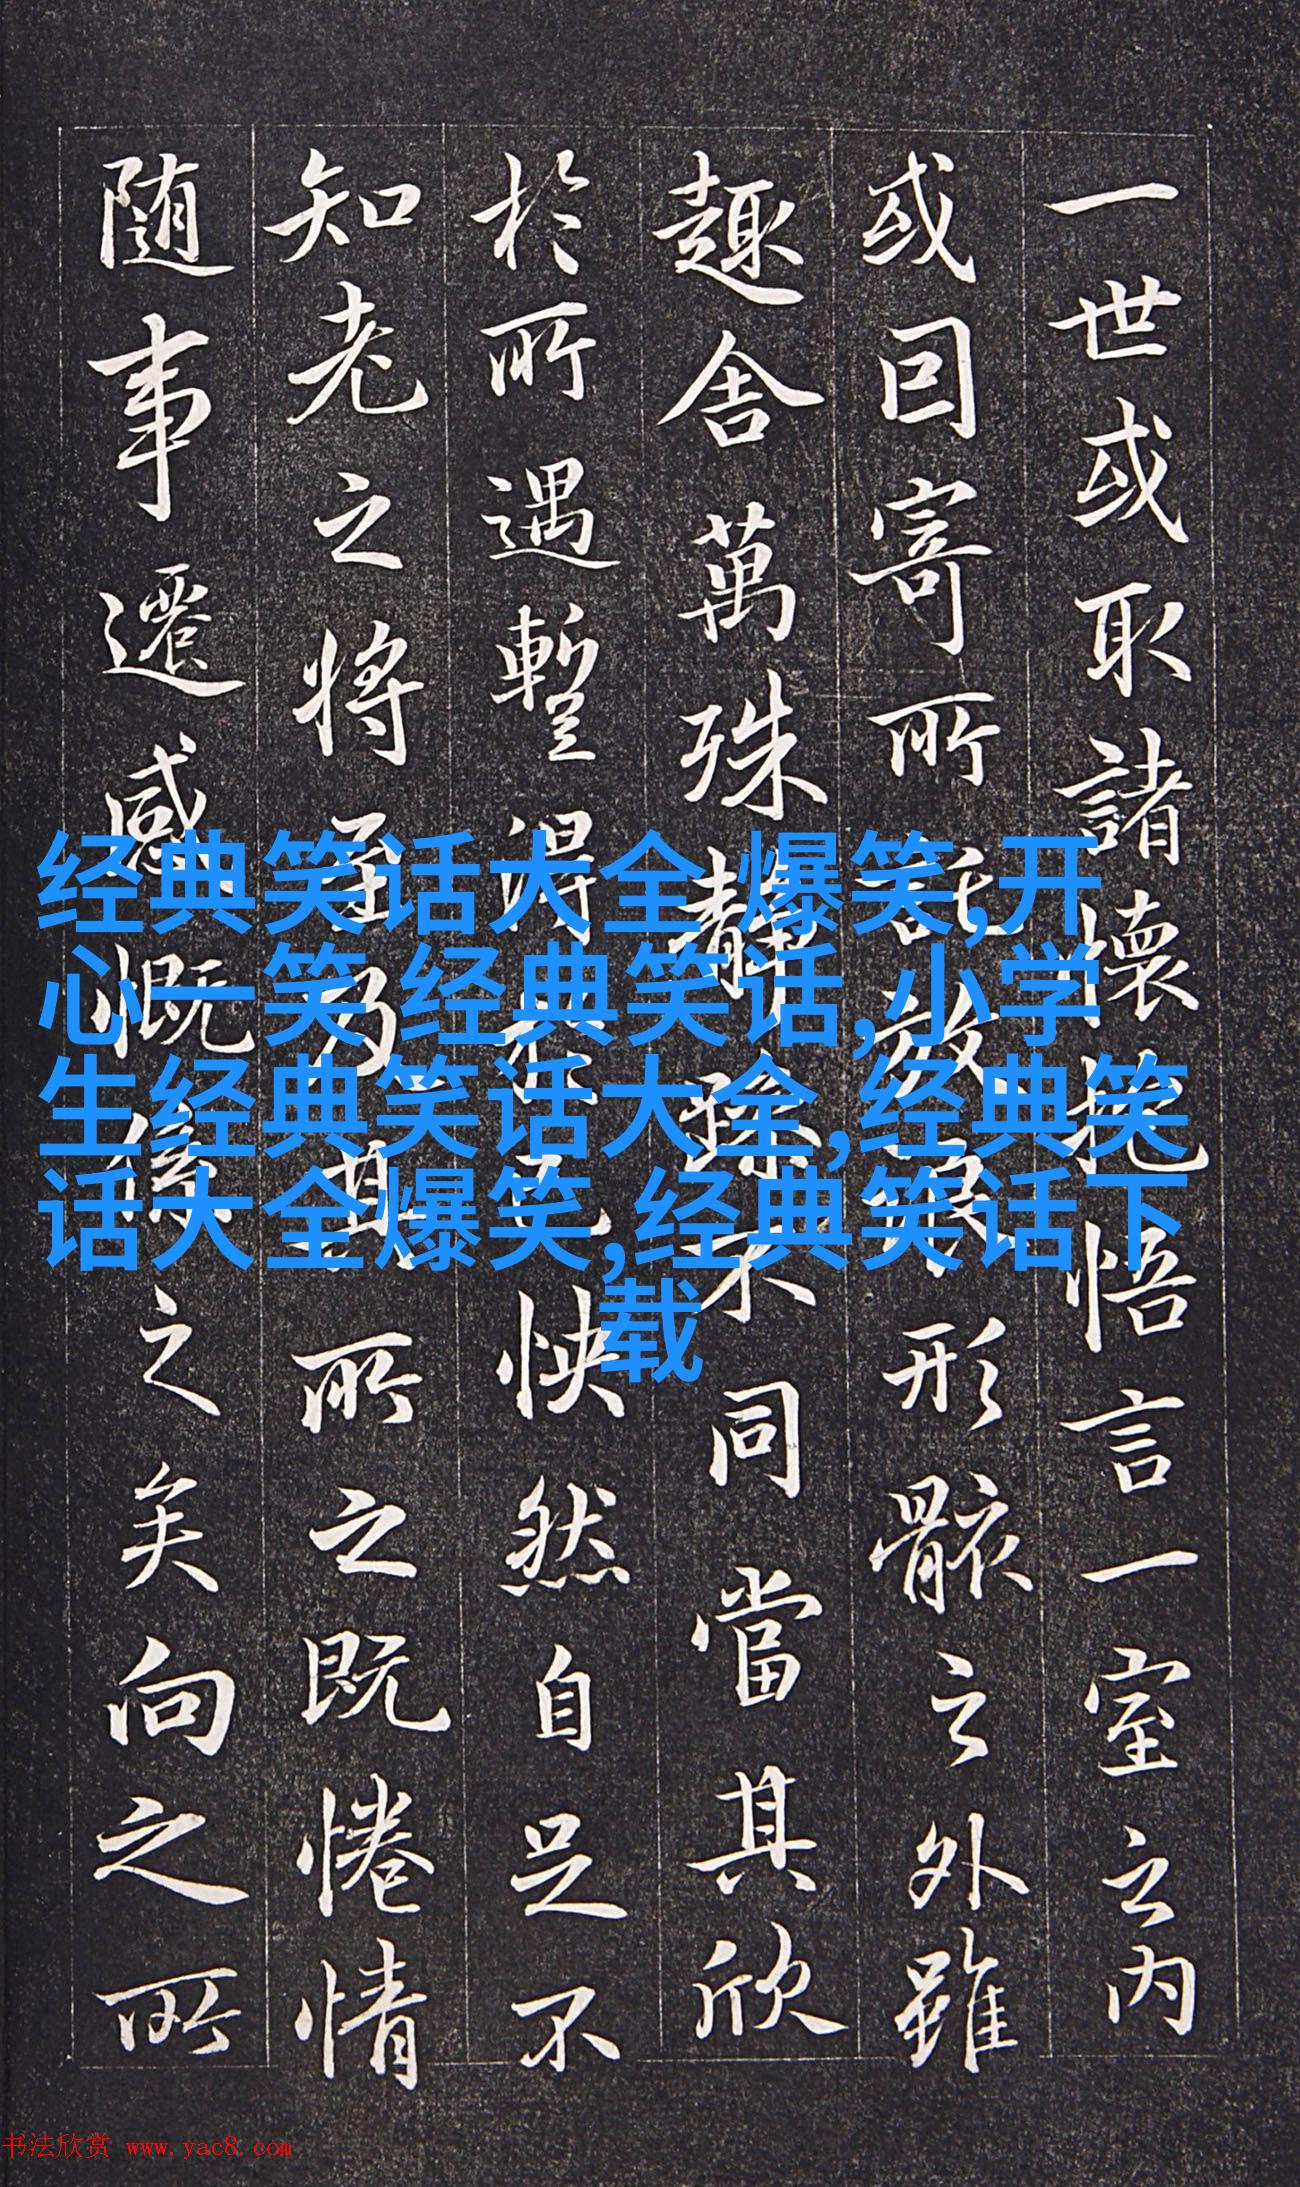 一世或取諸懷抱悟言一室之内
或囙寄所託放浪形骸之外雖
趣舍萬殊靜躁不同當其欣
於所遇暫得於己怏然自足不
知老之將至及其所之既惓情
随事遷感慨係之矣向之所
经典笑话大全 爆笑,开
心一笑 经典笑话,小学
生经典笑话大全,经典笑
话大全爆笑,经典笑话下
载
书法欣赏 www.yac8.com